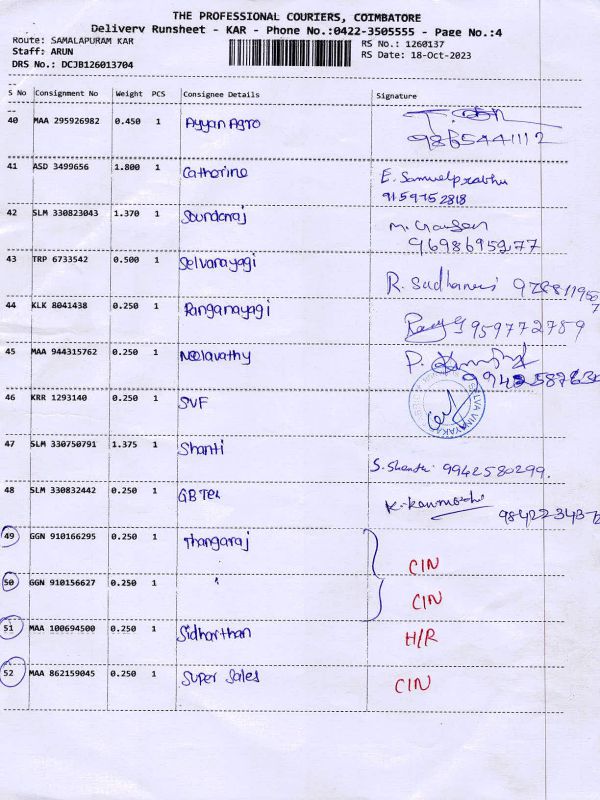 THE PROFESSIONAL COURIERS, COIMBATORE
Delivery Runsheet - KAR - Phone No.:0422-3505555 - Page No.:4
Route: SAMALAPURAM KAR RS No.: 1260137
Staff: ARUN RS Date: 18-Oct-2023
DRS No.: DCJB126013704
S No Consignment No Weight PCS Consignee Details Signature
40 MAA 295926982 0.450 1 Ayyan Agro
9865441112
41 ASD 3499656 1.800 1 Catherine E. Samuelprabhu
9159752818
42 SLM 330823043 1.370 1 Soundaraj M.
9698695277
43 TRP 6733542 0.500 1 Selvanayagi R.
44 KLK 8041438 0.250 1 Ranganayagi 959772789
45 MAA 944315762 0.250 1 Neelavathy P.
46 KRR 1293140 0.250 1 SVF SELVA VINAYAKA
47 SLM 330750791 1.375 1 Shanti
S. Shanthi 9942580299.
48 SLM 330832442 0.250 1 GB Tex K.
49 GGN 910166295 0.250 1 Thangaraj
CIN
50 GGN 910156627 0.250 1 "
CIN
51 MAA 100694500 0.250 1 Sidharthan H/R
52 MAA 862159045 0.250 1 Super Sales CIN